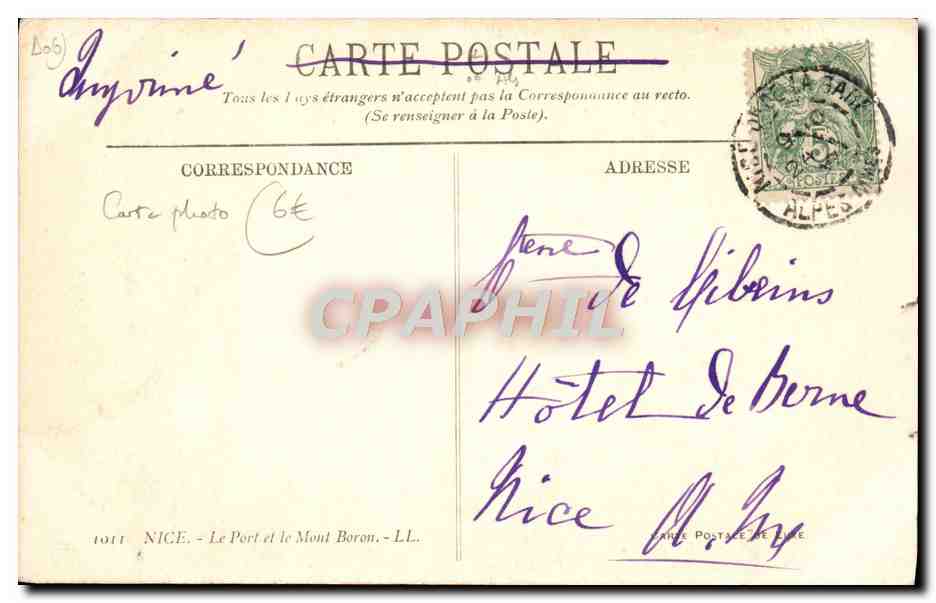 D06)
Imprimé
CARTE POSTALE
06 Alp
Tous les Pays étrangers n'acceptent pas la Correspondance au recto.
(Se renseigner à la Poste).
CORRESPONDANCE
ADRESSE
Carte photo 6€
de Mibrins
Hôtel de Berne
Nice A. M.
1011 NICE. - Le Port et le Mont Boron. - LL.
CARTE POSTALE DE LUXE
CPAPHIL
5
POSTES
ALPES MMES